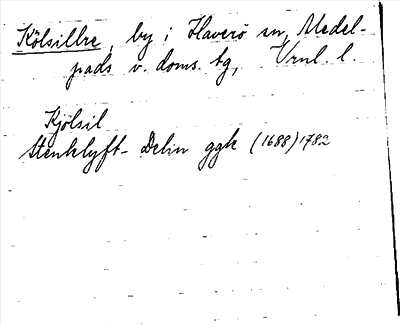 Kölsillre, by i Haverö sn, Medel-
pads v. doms. tg, Vrnl. l.
Kjölsil
Stenklyft- Delin ggk (1688) 1782